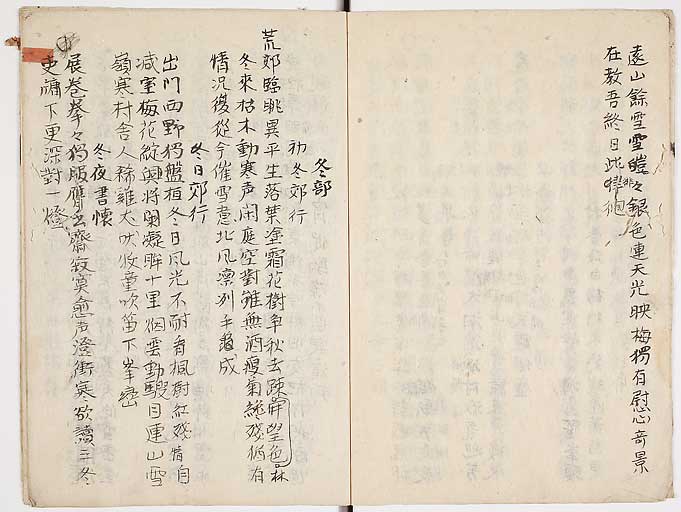 遠山餘雪雪皚々銀色連天光映梅獨有慰心奇景
在教吾終日此徘徊
冬部
初冬郊行
荒郊臨眺異平生落葉塗霜花樹争秋去疎屏望色林
冬來枯木動寒声閑庭空對雖無酒瘦菊纔殘猶有
情況復從今催雪意北風凛列手龜成
冬日郊行
出門西野獨盤桓冬日風光不耐看楓樹紅殘情自
减室梅花綻興將闌凝眸十里烟雲動駿目連山雪
嶺寒村舎人稀雞犬吠牧童吹笛下峯巒
冬夜書懐
展巻拳々獨服膺書齋寂寞愈声澄衝寒欲讀三冬
史牗下更深對一燈